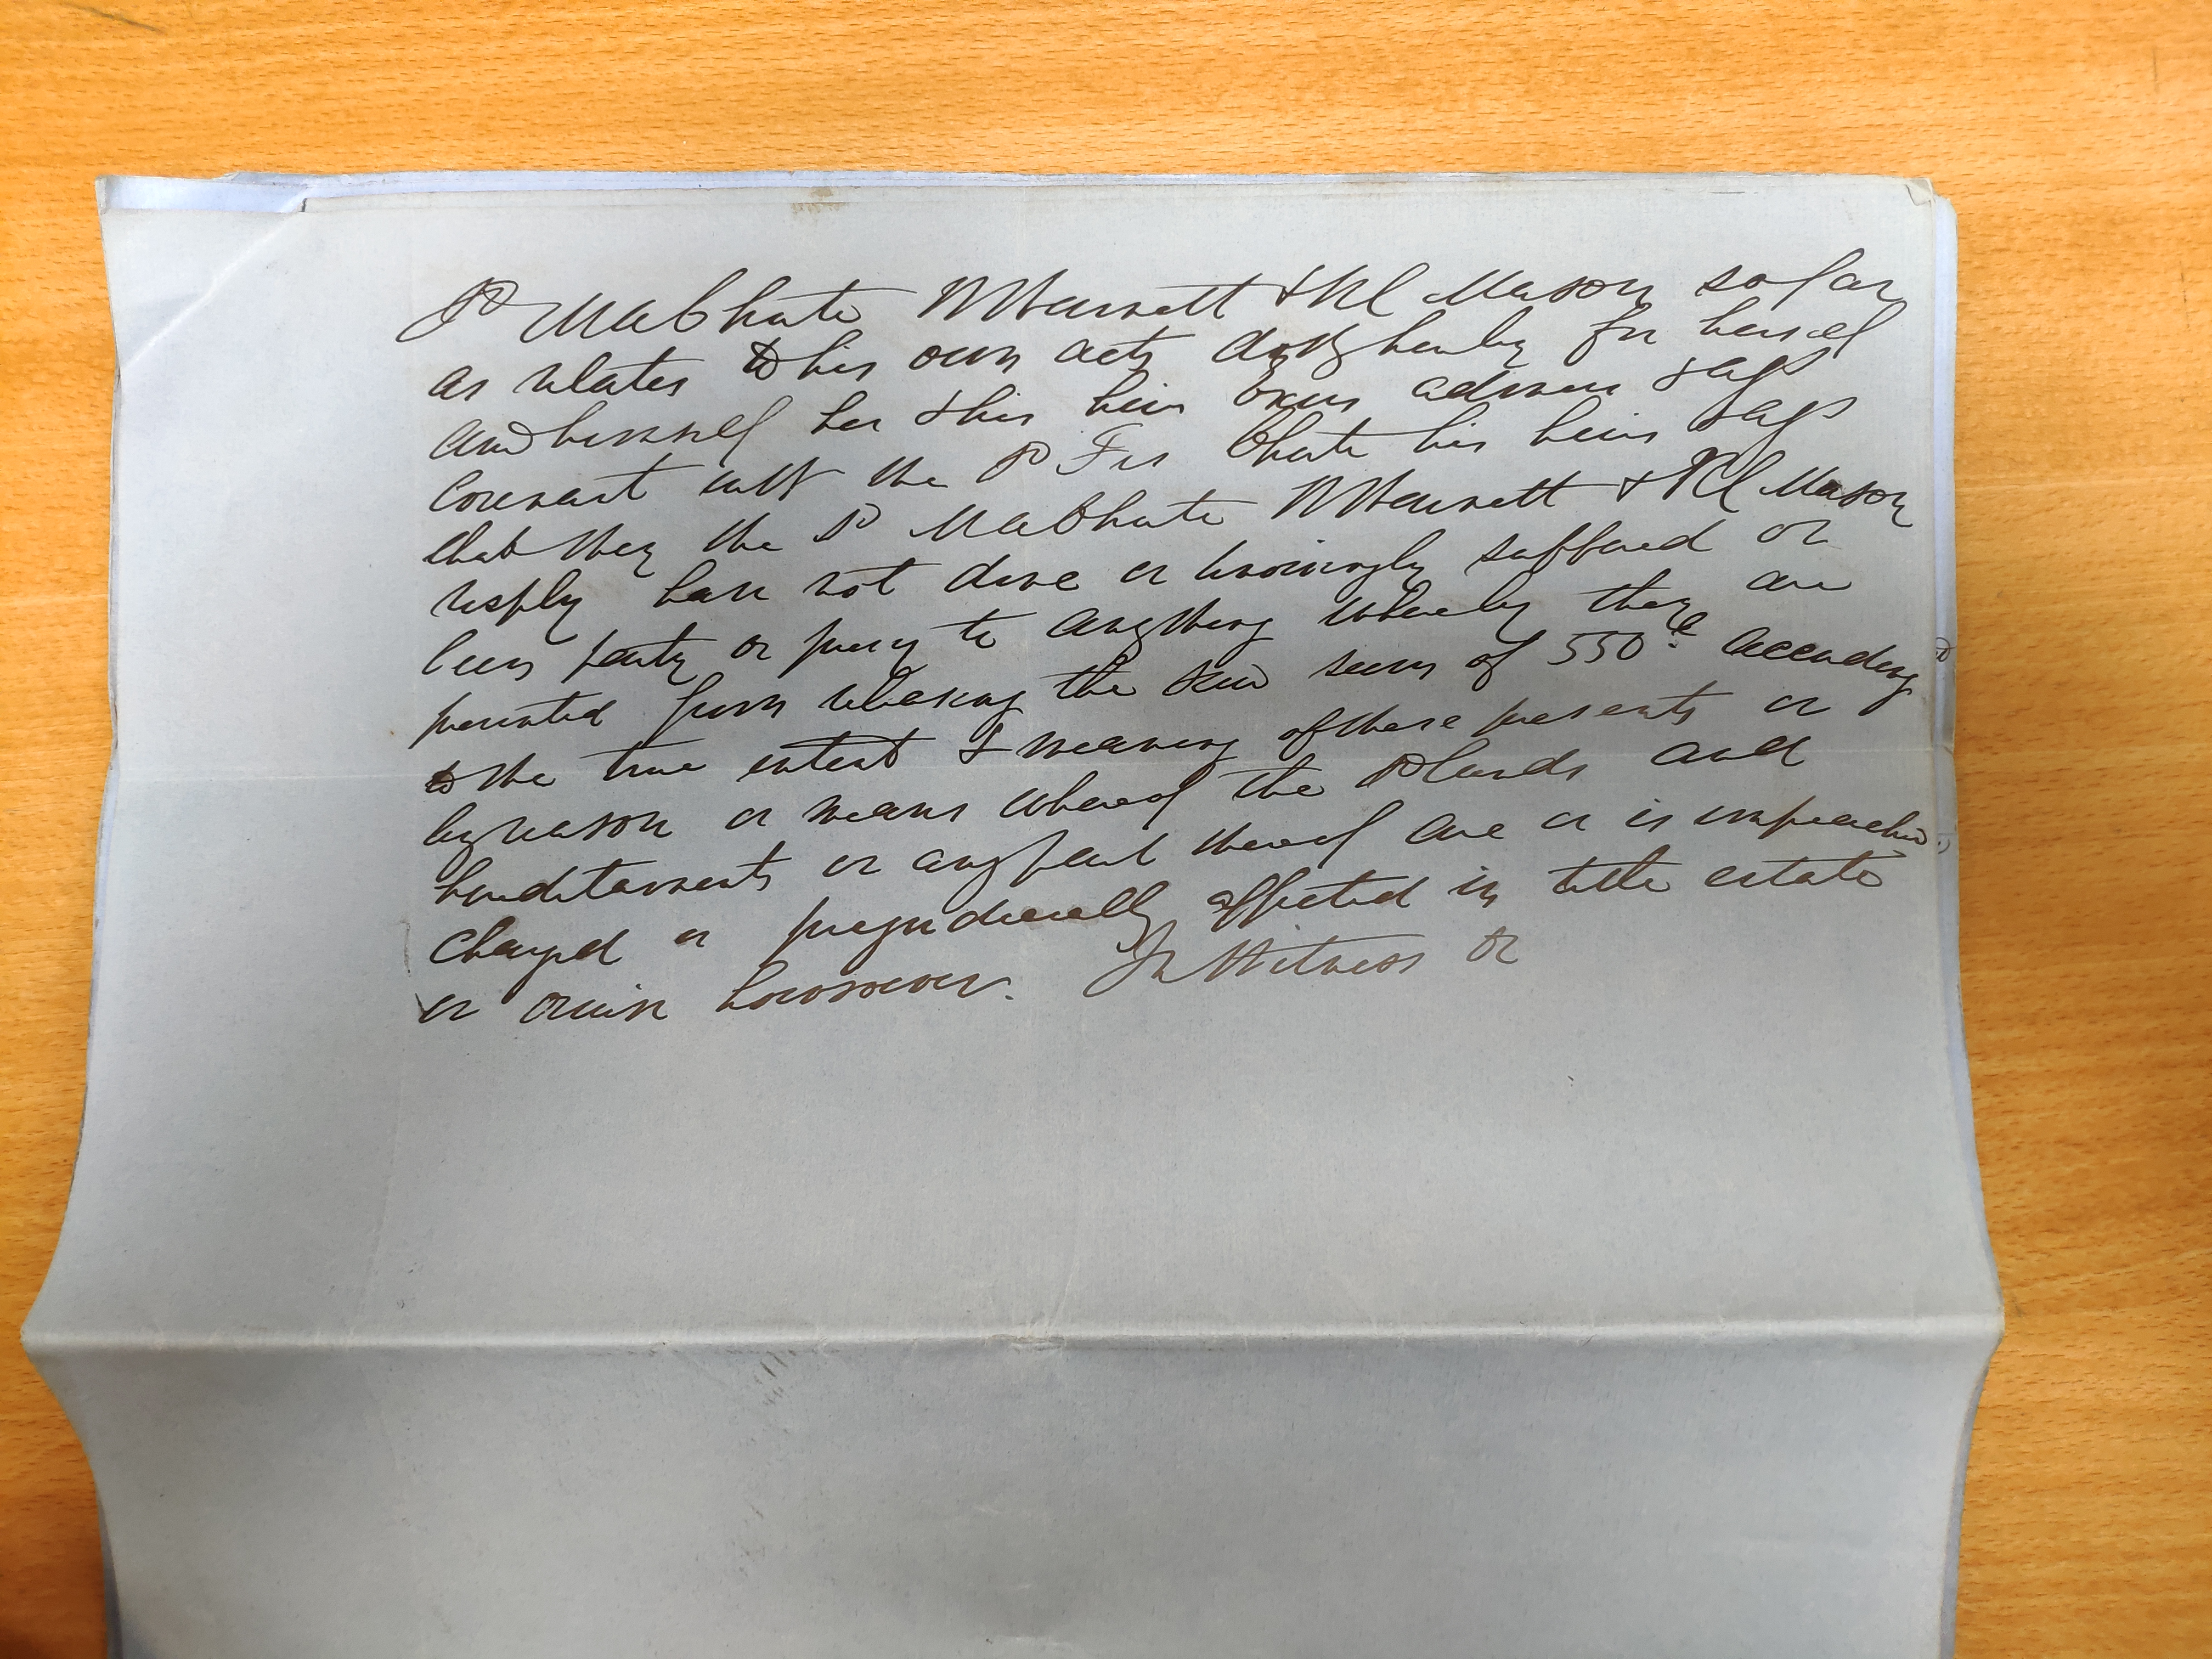 sd Ma Chute W Warnett & Rd Mason so far
as relates to his own acts doth hereby for herself
and himself her & his heirs Exors admors & ass
Covenant with the sd Fras Chute his heirs & ass
that they the sd Ma Chute W Warnett & Rd Mason
resply have not done or knowingly suffered or
been party or privy to anything whereby they are
prevented from releasing the said sum of 550£ according
to the true intent & meaning of these presents or
by reason or means whereof the sd lands and
hereditaments or any part thereof are or is impeached
charged or prejudicially affected in title estate
or orwise howsoever. In Witness &c